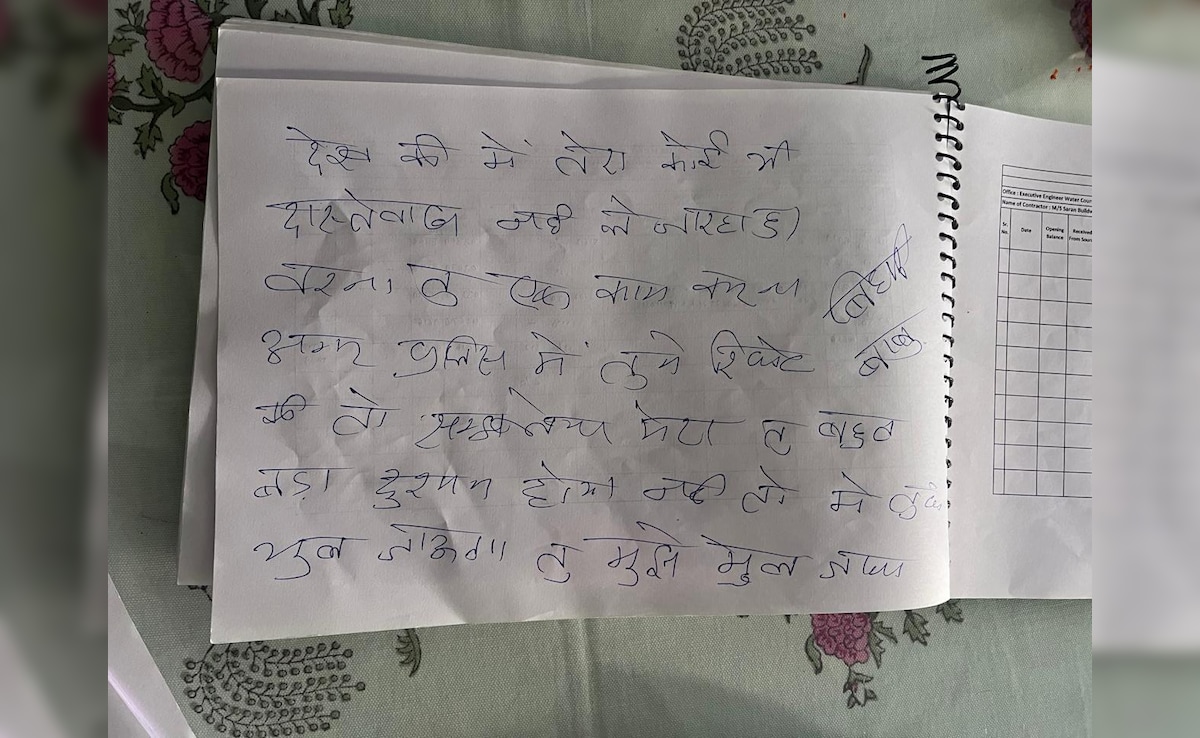 देख की में तेरा कोई भी
दास्तेवाज नही ले जारहा हु)
वरना तु एक काम करना
बिहारी
बाबु
अगर पुलिस में तुमे रिपोट
की तो समझलेना मेरा तु बहुत
बड़ा दुश्मन होगा नही तो मे तुझे
भुल जाऊगा तु मुझे भुल जाना
Office : Executive Engineer Water
Name of Contractor : M/S Saran
Sr. No.
Date
Opening Balance
Received From